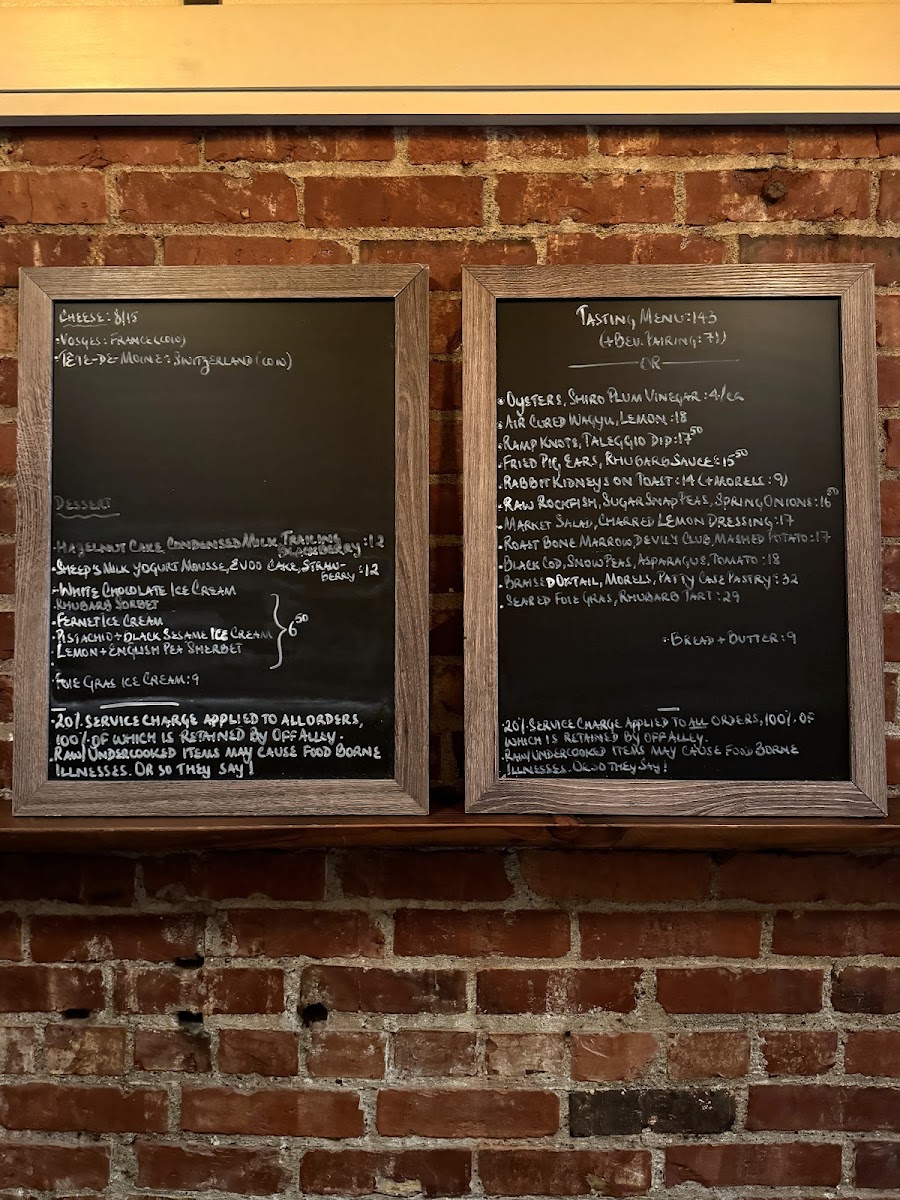 CHEESE: 8/15
-VOSGES: FRANCE (COW)
-TÊTE-DE-MOINE: SWITZERLAND (COW)
DESSERT
-HAZELNUT CAKE, CONDENSED MILK, TRAILING
BLACKBERRY: 12
-SHEEP'S MILK YOGURT MOUSSE, EVOO CAKE, STRAW-
BERRY :12
-WHITE CHOCOLATE ICE CREAM
-RHUBARB SORBET
-FERNET ICE CREAM
-PISTACHIO + BLACK SESAME ICE CREAM
-LEMON + ENGLISH PEA SHERBET
6 50
-FOIE GRAS ICE CREAM: 9
-20% SERVICE CHARGE APPLIED TO ALL ORDERS,
100% OF WHICH IS RETAINED BY OFF ALLEY.
-RAW/UNDERCOOKED ITEMS MAY CAUSE FOOD BORNE
ILLNESSES. OR SO THEY SAY!
TASTING MENU: 143
(+BEV. PAIRING: 71)
OR
-OYSTERS, SHIRO PLUM VINEGAR: 4/EA
-AIR CURED WAGYU, LEMON: 18
-RAMP KNOTS, TALEGGIO DIP: 17 50
-FRIED PIG EARS, RHUBARB SAUCE: 15 50
-RABBIT KIDNEYS ON TOAST: 14 (+MORELS: 9)
-RAW ROCKFISH, SUGAR SNAP PEAS, SPRING ONIONS: 16 50
-MARKET SALAD, CHARRED LEMON DRESSING: 17
-ROAST BONE MARROW, DEVIL'S CLUB, MASHED POTATO: 17
-BLACK COD, SNOW PEAS, ASPARAGUS, TOMATO: 18
-BRAISED OXTAIL, MORELS, PATTY CASE PASTRY: 32
-SEARED FOIE GRAS, RHUBARB TART: 29
-BREAD + BUTTER: 9
-20% SERVICE CHARGE APPLIED TO ALL ORDERS, 100% OF
WHICH IS RETAINED BY OFF ALLEY.
-RAW/UNDERCOOKED ITEMS MAY CAUSE FOOD BORNE
ILLNESSES. OR SO THEY SAY!